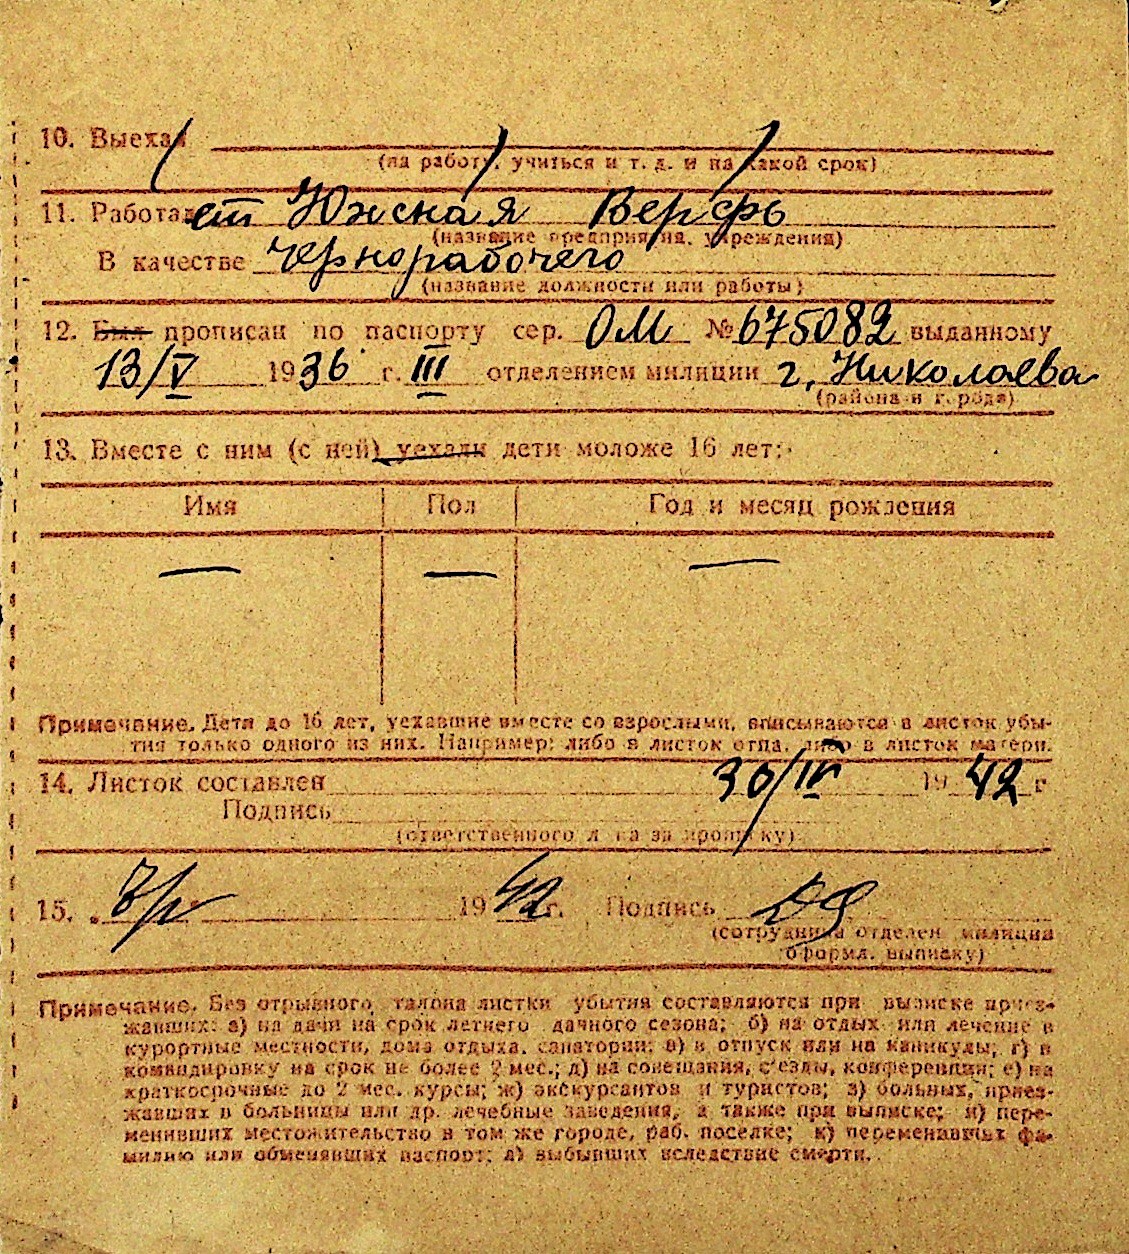 10. Выехал
(на работу, учиться и т. д. и на какой срок)
11. Работает Южсная Верфь
(название предприятия, учреждения)
В качестве чернорабочего
(название должности или работы)
12. Был прописан по паспорту сер. ОМ № 675082 выданному
13/V 1936 г. III отделением милиции г. Николаева
(района и города)
13. Вместе с ним (с ней) уехали дети моложе 16 лет:
Имя Пол Год и месяц рождения
— — —
Примечание. Дети до 16 лет, уехавшие вместе со взрослыми, вписываются в листок убы-
тия только одного из них. Например: либо в листок отца, либо в листок матери.
14. Листок составлен 30/IV 1942 г
Подпись
(ответственного лица за прописку)
15. 1942 г. Подпись
(сотрудника отделен. милиции
оформл. выписку)
Примечание. Без отрывного талона листки убытия составляются при выписке приез-
жавших: а) на дачи на срок летнего дачного сезона; б) на отдых или лечение в
курортные местности, дома отдыха, санатории; в) в отпуск или на каникулы; г) в
командировку на срок не более 2 мес.; д) на совещания, с'езды, конференции; е) на
краткосрочные до 2 мес. курсы; ж) экскурсантов и туристов; з) больных, приез-
жавших в больницы или др. лечебные заведения, а также при выписке; и) пере-
менивших местожительство в том же городе, раб. поселке; к) переменивших фа-
милию или обменявших паспорт; л) выбывших вследствие смерти.